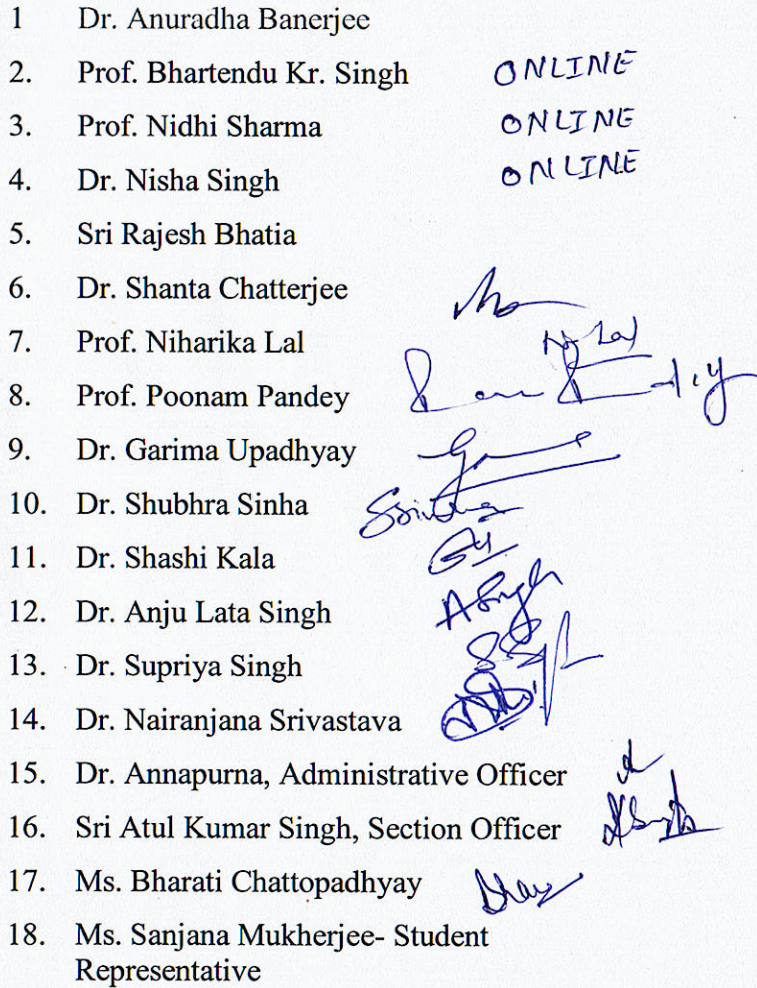 1 Dr. Anuradha Banerjee
2. Prof. Bhartendu Kr. Singh ONLINE
3. Prof. Nidhi Sharma ONLINE
4. Dr. Nisha Singh ONLINE
5. Sri Rajesh Bhatia
6. Dr. Shanta Chatterjee
7. Prof. Niharika Lal
8. Prof. Poonam Pandey
9. Dr. Garima Upadhyay
10. Dr. Shubhra Sinha
11. Dr. Shashi Kala
12. Dr. Anju Lata Singh ASingh
13. Dr. Supriya Singh
14. Dr. Nairanjana Srivastava
15. Dr. Annapurna, Administrative Officer
16. Sri Atul Kumar Singh, Section Officer
17. Ms. Bharati Chattopadhyay
18. Ms. Sanjana Mukherjee- Student
Representative